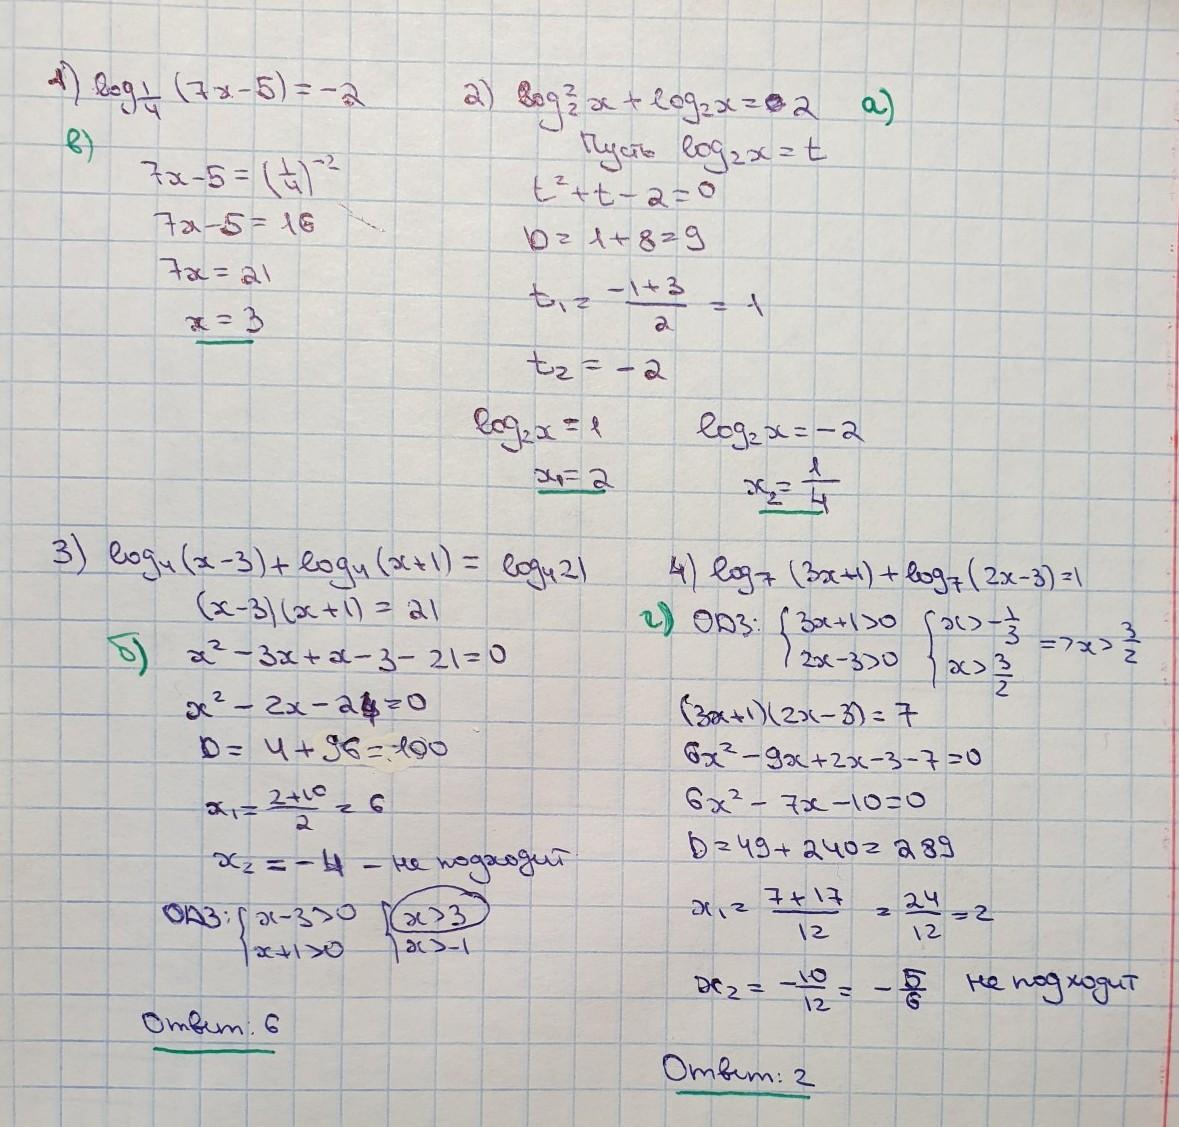 1) log_{1/4} (7x-5) = -2
в)
7x-5 = (1/4)^{-2}
7x-5 = 16
7x = 21
x = 3
2) log₂² x + log₂x = 2 а)
Пусть log₂x = t
t² + t - 2 = 0
D = 1 + 8 = 9
t₁ = (-1+3)/2 = 1
t₂ = -2
log₂x = 1 log₂x = -2
x₁ = 2 x₂ = 1/4
3) log₄(x-3) + log₄(x+1) = log₄21
(x-3)(x+1) = 21
б) x² - 3x + x - 3 - 21 = 0
x² - 2x - 24 = 0
D = 4 + 96 = 100
x₁ = (2+10)/2 = 6
x₂ = -4 - не подходит
ОДЗ: { x-3>0 { x>3
{ x+1>0 { x>-1
Ответ: 6
4) log₇ (3x+1) + log₇ (2x-3) = 1
г) ОДЗ: { 3x+1>0 { x>-1/3 => x> 3/2
{ 2x-3>0 { x> 3/2
(3x+1)(2x-3) = 7
6x² - 9x + 2x - 3 - 7 = 0
6x² - 7x - 10 = 0
D = 49 + 240 = 289
x₁ = (7+17)/12 = 24/12 = 2
x₂ = -10/12 = -5/6 не подходит
Ответ: 2